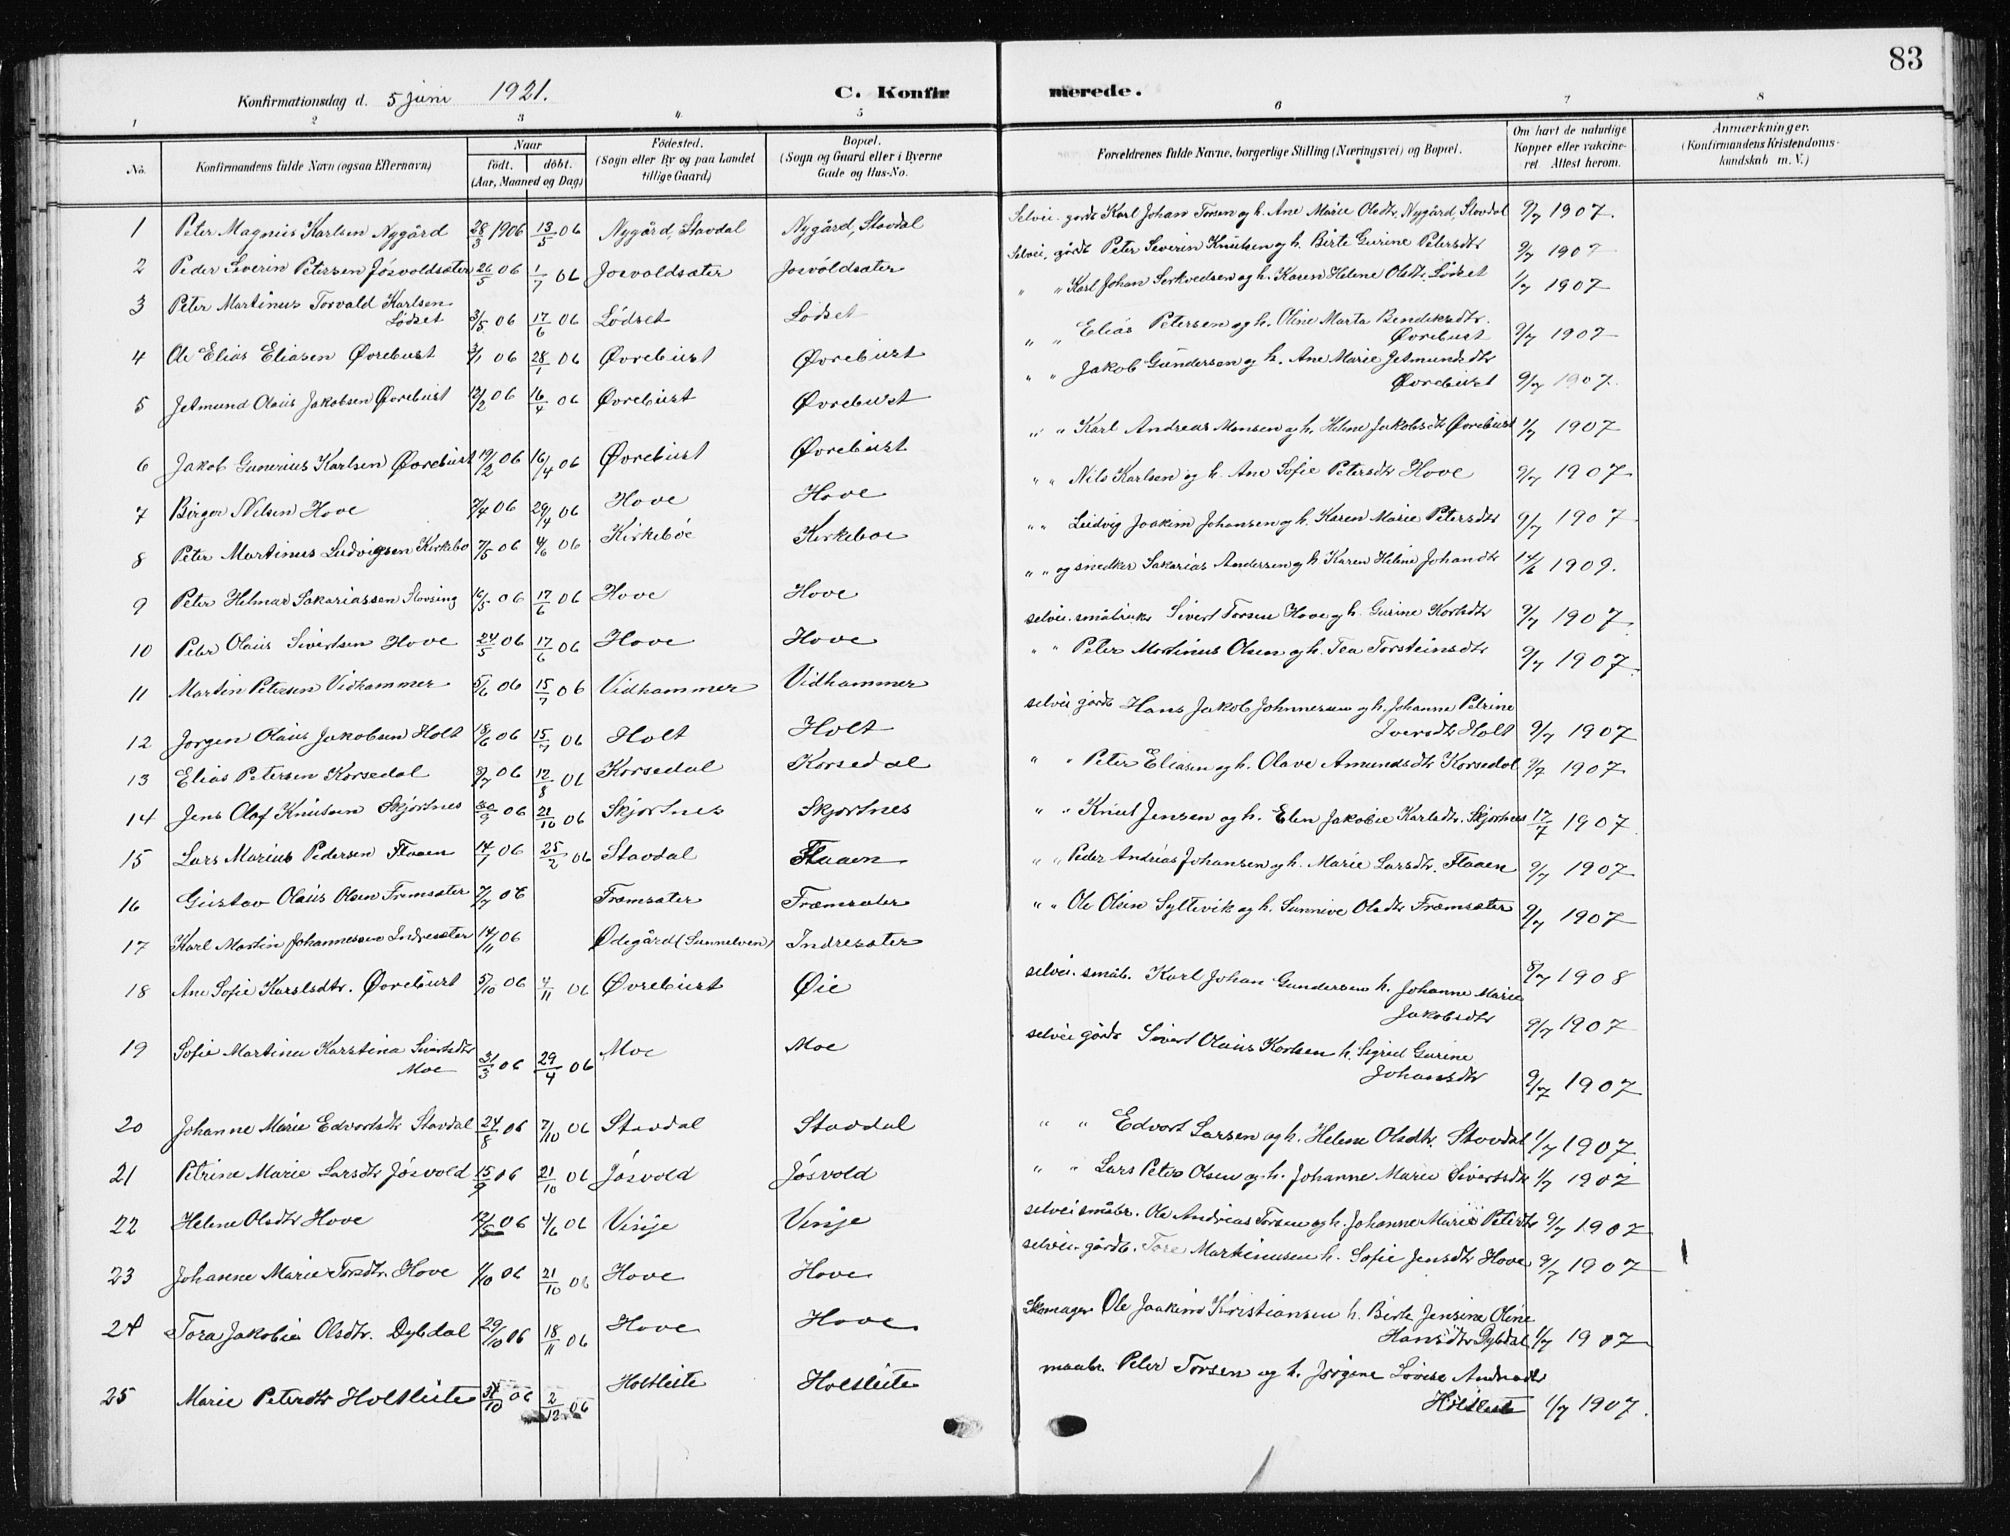 83
Konfirmationsdag d. 5 juni 1921. C. Konfirmerede.
1 2 3 4. 5 6 7 8
No. Konfirmandens fulde Navn (ogsaa Efternavn) Naar født. døbt. (Aar, Maaned og Dag) Fødested. (Sogn eller By og paa Landet tillige Gaard) Bopæl. (Sogn og Gaard eller i Byerne Gade og Hus-No. Forældrenes fulde Navne, borgerlige Stilling (Næringsvei) og Bopæl. Om havt de naturlige Kopper eller vakcineret Attest herom. Anmærkninger. (Konfirmandens Kristendomskundskab m. V.)
1 Peter Magnus Karlsen Nygård 28/3 1906 13/5 06 Nygård, Stavdal Nygård, Stavdal Selvei. gårdb Karl Johan Torsen og h. Ane Marie Olsdtr. Nygård, Stavdal 9/7 1907.
2 Peder Severin Petersen Jøsvoldsæter 26/5 06 1/7 06 Josvoldsæter Josvoldsæter Selvei. gårdb Peter Severin Knutsen og h. Birte Gurine Petersdtr 9/7 1907
3 Peter Martinus Torvald Karlsen Lødset 3/5 06 17/6 06 Lødset Lødset " " Karl Johan Serkvedsen og h. Karen Helene Olsdtr. Lødset 1/7 1907
4 Ole Elias Eliasen Øvrebust 3/1 06 28/1 06 Øvrebust Øvrebust " " Elias Petersen og h. Oline Marta Bendiksdtr. Øvrebust 9/7 1907
5 Jetmund Olaus Jakobsen Øvrebust 12/2 06 16/4 06 Øvrebust Øvrebust " " Jakob Gundersen og h. Ane Marie Jetmundsdtr Øvrebust 9/7 1907.
6 Jakob Gunerius Karlsen Øvrebust 19/2 06 16/4 06 Øvrebust Øvrebust " " Karl Andreas Monsen og h. Helene Jakobsdtr Øvrebust 1/7 1907
7 Birger Nilsen Hove 7/4 06 29/4 06 Hove Hove " " Nils Karlsen og h. Ane Sofie Petersdtr Hove 9/7 1907
8 Peter Martinus Ludvigsen Kirkebø 7/5 06 4/6 06 Kirkebøe Kirkeboe " " Ludvig Joakim Johansen og h. Karen Marie Petersdtr 9/7 1907
9 Peter Helmar Sakariassen Stavsing 16/5 06 17/6 06 Hove Hove " " og snedker Sakarias Andersen og h Karen Helene Johansdtr 14/6 1909.
10 Peter Olaus Sivertsen Hove 24/5 06 17/6 06 Hove Hove selvei. småbruker Sivert Torsen Hove og h. Gurine Korlsdtr 9/7 1907
11 Martin Petersen Vidhammer 5/6 06 15/7 06 Vidhammer Vidhammer " " Peter Martinus Olsen og h. Tea Torsteinsdtr 9/7 1907.
12 Jorgen Olaus Jakobsen Holt 18/6 06 15/7 06 Holt Holt selvei gårdb Hans Jakob Johnnesen og h. Johanne Petrine Iversdtr Holt 9/7 1907
13 Elias Petersen Korsedal 9/7 06 12/8 06 Korsedal Korsedal " " Peter Eliasen og h. Olave Amundsdtr Korsedal 9/7 1907
14 Jens Olaf Knutsen Skjortnes 30/9 06 21/10 06 Skjortnes Skjortnes " " Knut Jensen og h. Elen Jakobie Karlsdtr. Skjortnes 17/7 1907
15 Lars Marius Pedersen Flaaen 14/1 06 25/2 06 Stavdal Flaaen " " Peder Andreas Johansen og h. Marie Larsdtr. Flaaen 9/7 1907
16 Gustav Olaus Olsen Fremsæter 7/7 06 Fræmsæter Fræmsæter " " Ole Olsen Syltevik og h. Sunnive Olsdtr Fræmsæter 9/7 1907
17 Karl Martin Johannessen Indresæter 14/11 06 Ødegård (Sunnelven) Indresæter 8/7 1908
18 Ane Sofie Karlsdtr. Øvrebust 5/10 06 4/11 06 Øvrebust Øie selvei. småb. Karl Johan Gundersen h. Johanne Marie Jakobsdtr 9/7 1907
19 Sofie Martine Karstina Sivertsdtr Moe 31/3 06 29/4 06 Moe Moe selvei gårdb Sivert Olaus Korlsen h. Sigrid Gurine Johansdtr 9/7 1907
20 Johanne Marie Edvardsdtr Stavdal 24/8 06 7/10 06 Stavdal Stavdal " " Edvart Larsen og h. Helene Olsdtr. Stavdal 1/7 1907
21 Petrine Marie Larsdtr Jøsvold 15/9 06 21/10 06 Jøsvold Jøsvold " " Lars Peter Olsen og h. Johanne Marie Sivertsdtr 1/7 1907
22 Helene Olsdtr Hove 12/5 06 4/6 06 Vinje Vinje selvei småbr. Ole Andreas Torsen og h. Johanne Marie Petersdtr 9/7 1907
23 Johanne Marie Torsdtr. Hove 1/10 06 21/10 06 Hove Hove selvei. gårdb. Tore Martinusen h. Sofie Jensdtr Hove 9/7 1907
24 Tora Jakobie Olsdtr. Dybdal 29/10 06 18/11 06 Hove Hove Skomager Ole Joakim Kristiansen h. Birte Jensine Oline Hansdtr Dybdal 1/7 1907
25 Marie Petersdtr Holtsleite 31/10 06 2/12 06 Holtsleite Holtsleite maabr. Peter Torsen og h. Jørgine Lovise Andrsdtr Holtsleite 1/7 1907.